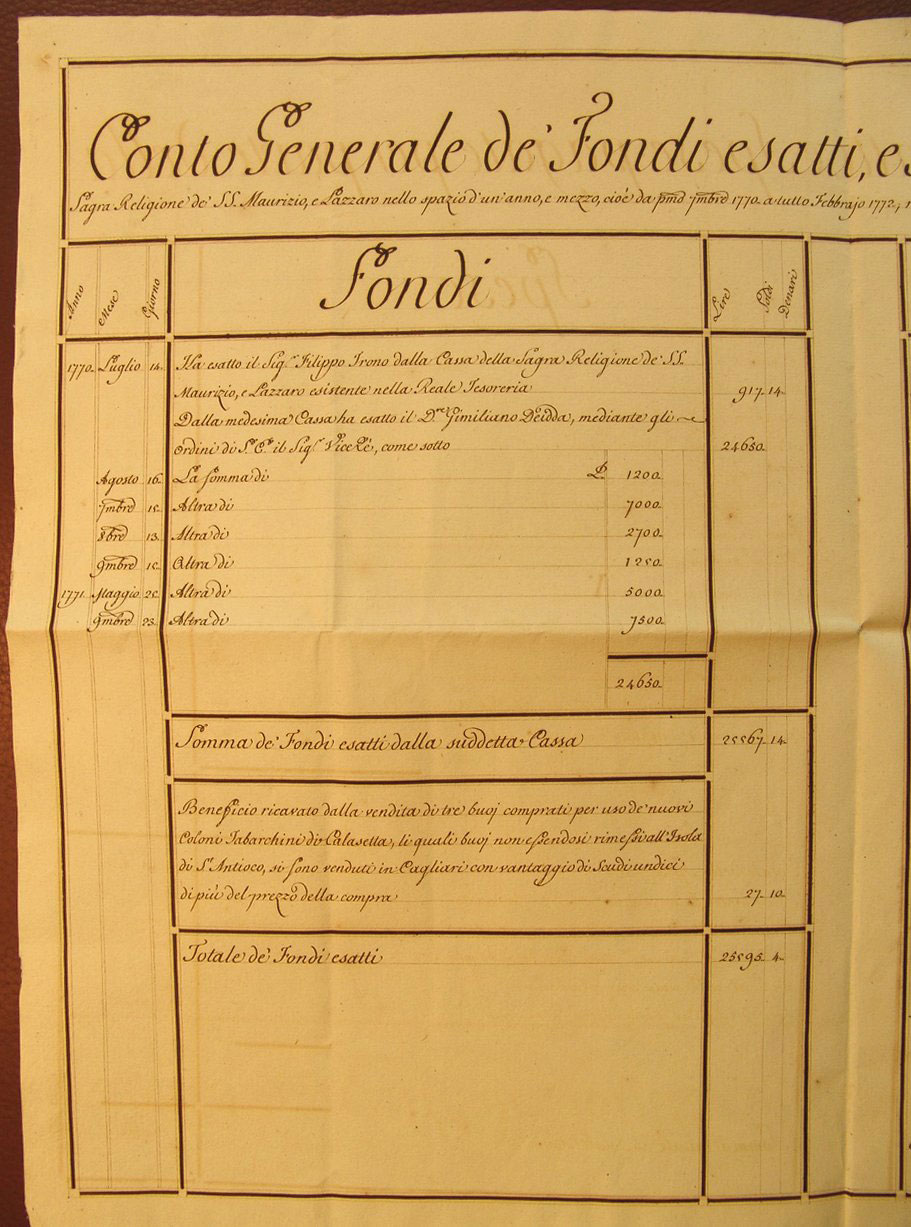 Conto Generale de' Fondi esatti, es
Sagra Religione de' SS. Maurizio, e Lazzaro nello spazio d'un'anno, e mezzo, cioè da pmo 7mbre 1770. a tutto Febbrajo 1772.,
Anno Mese Giorno Fondi Lire Soldi Denari
1770. Luglio 14. Ha esatto il Sigr. Filippo Irono dalla Cassa della Sagra Religione de' SS.
Maurizio, e Lazzaro esistente nella Reale Tesoreria 917. 14.
Dalla medesima Cassa ha esatto il Dre. Gimiliano Deidda, mediante gli
ordini di S. E. il Sigr. ViceRè, come sotto 24650.
Agosto 16. La somma di L. 1200.
7mbre 15. Altra di 7000.
8bre 13. Altra di 2700.
9mbre 15. Altra di 1250.
1771. Maggio 25. Altra di 5000.
9mbre 23. Altra di 7500.
24650.
Somma de' Fondi esatti dalla suddetta Cassa 25567. 14.
Beneficio ricavato dalla vendita di tre buoj comprati per uso de' nuovi
Coloni Tabarchini di Calasetta, li quali buoj non essendosi rimessi all'Isola
di St. Antioco, si sono venduti in Cagliari con vantaggio di Scudi undici
di più del prezzo della compra 27. 10.
Totale de' Fondi esatti 25595. 4.